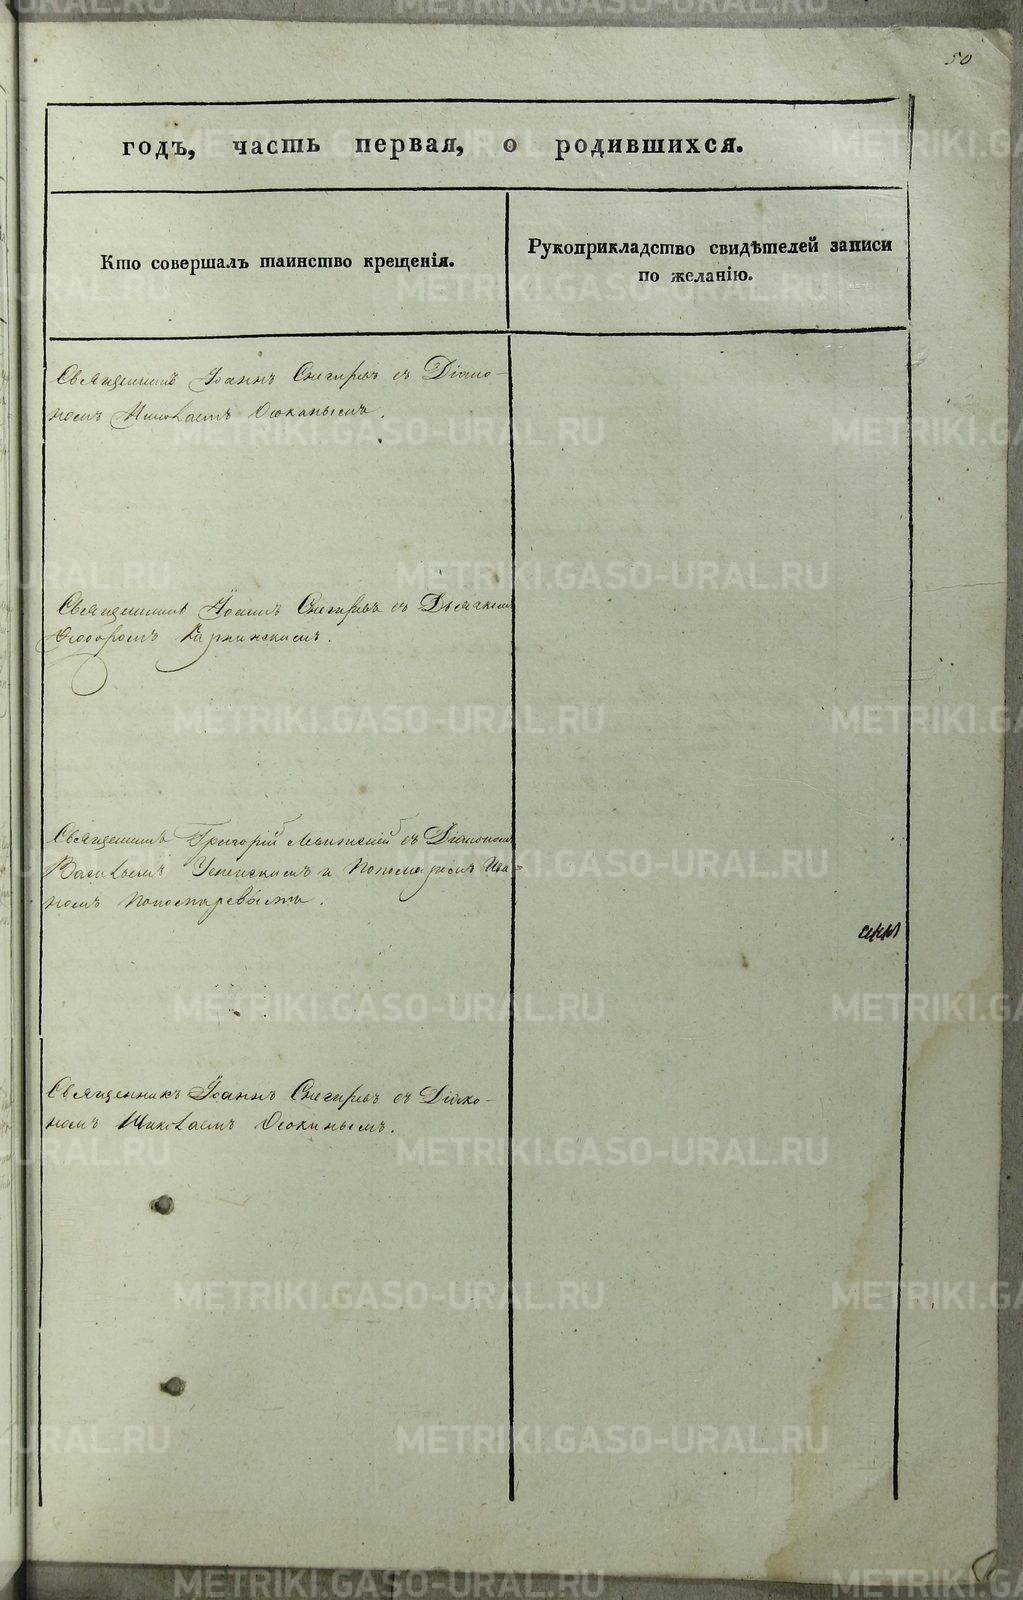 50
годъ, часть первая, о родившихся.
Кто совершалъ таинство крещенія.
Рукоприкладство свидѣтелей записи
по желанію.
Священникъ Іоаннъ Снегиревъ съ Діако-
номъ Николаемъ Осокинымъ.
Священникъ Іоаннъ Снегиревъ съ Дьячкомъ
Ѳеодоромъ
Священникъ Григорій съ Діакономъ
Васильемъ Успенскимъ и Пономаремъ Ива-
номъ Пономаревымъ.
Священникъ Іоаннъ Снегиревъ съ Діако-
номъ Николаемъ Осокинымъ.
METRIKI.GASO-URAL.RU